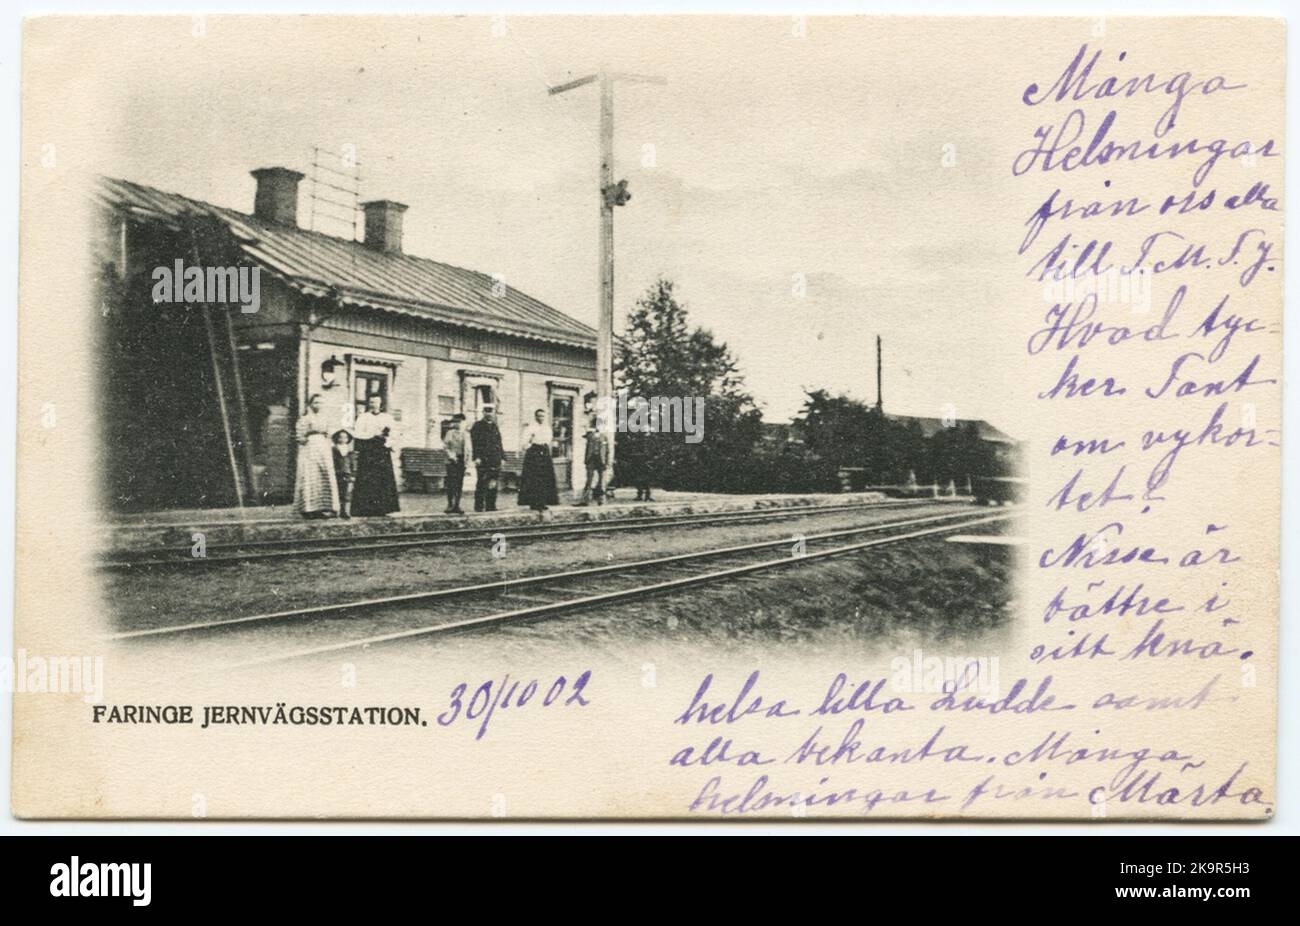 Många
Helsningar
från oss alla
till T. M. T. J.
Hvad tyc-
ker Tant
om vykor-
tet?
Nisse är
bättre i
sitt knä.
helsa lilla Ludde samt
alla bekanta. Många
helsningar från Märta.
FARINGE JERNVÄGSSTATION. 30/10 02
alamy
Image ID: 2K9R5H3
www.alamy.com